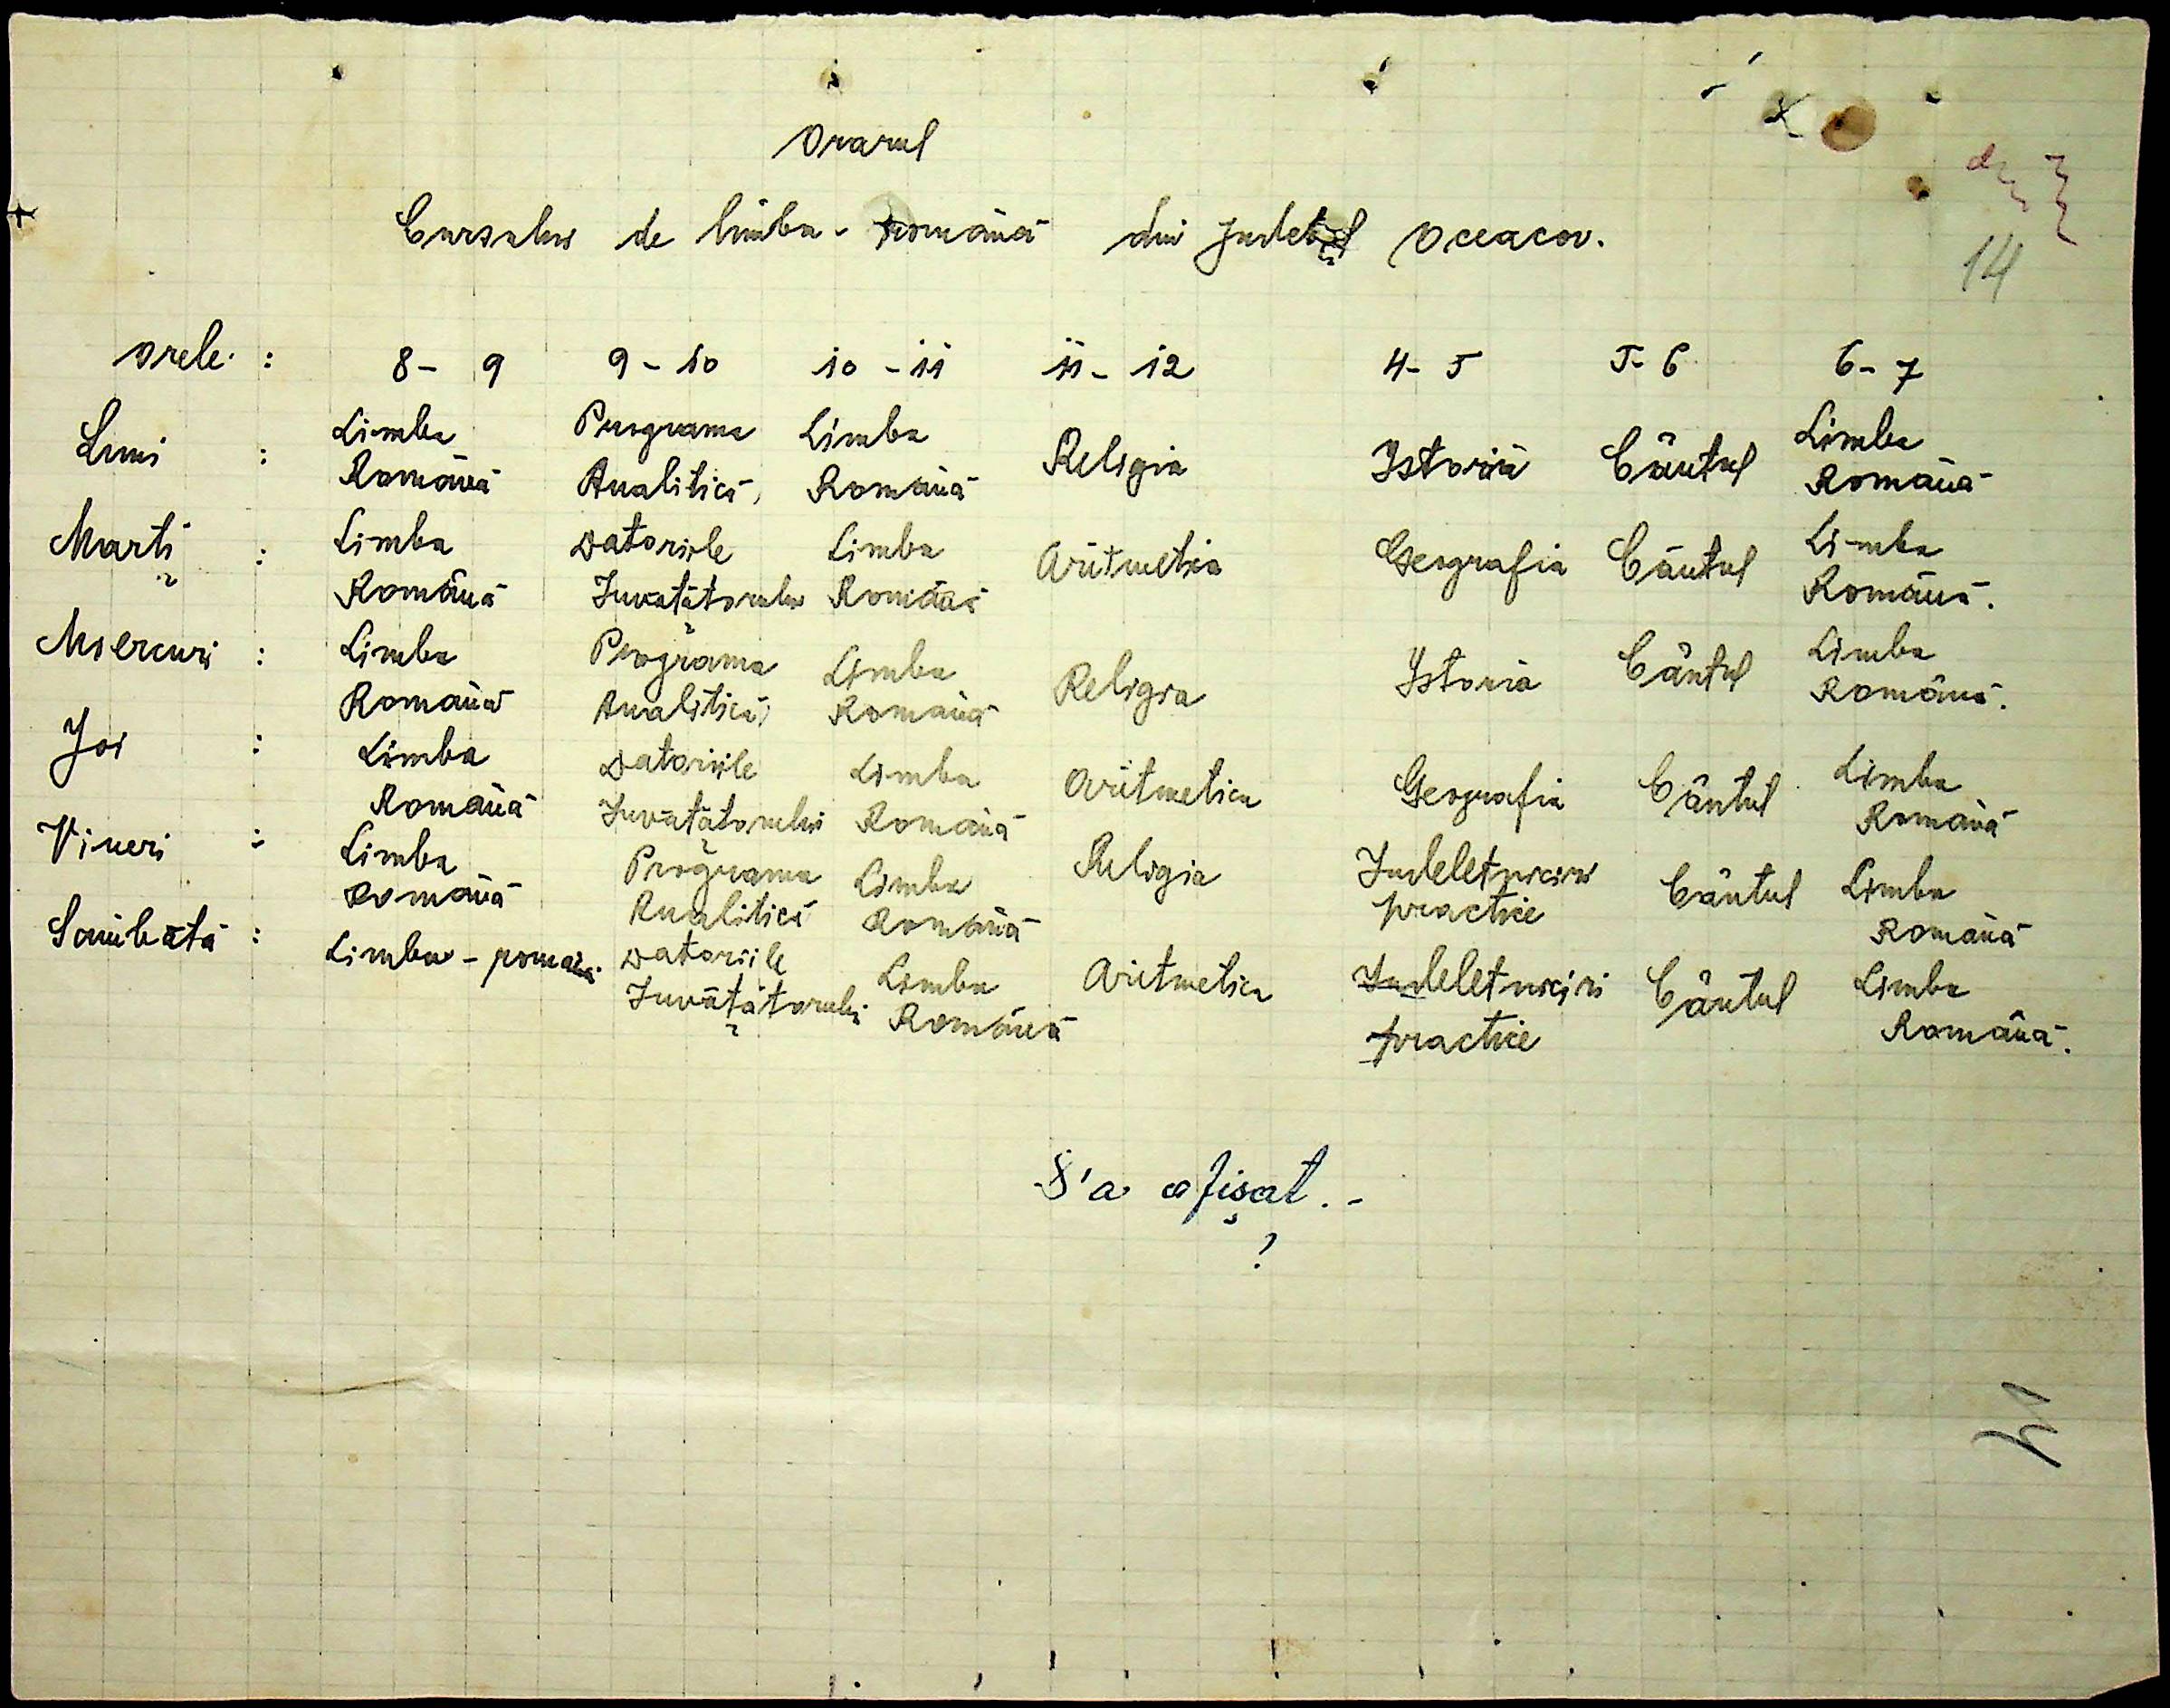 Orarul
Cursului de limba-română din Județul Oceacov.
14
Orele: 8-9 9-10 10-11 11-12 4-5 5-6 6-7
Luni : Limba Programa Limba Religia Istoria Cântul Limba
Română Analitică, Română Română
Marți : Limba Datoriile Limba Aritmetica Geografia Cântul Limba
Română Învățătorului Română Română.
Miercuri : Limba Programa Limba Religia Istoria Cântul Limba
Română Analitică, Română Română.
Joi : Limba Datoriile Limba Aritmetica Geografia Cântul Limba
Română Învățătorului Română Română
Vineri : Limba Programa Limba Religia Indeletniciri Cântul Limba
Română Analitică Română practice Română
Sâmbătă : Limba-română Datoriile Limba Aritmetica Indeletniciri Cântul Limba
Învățătorului Română practice Română.
S'a afișat.-
?